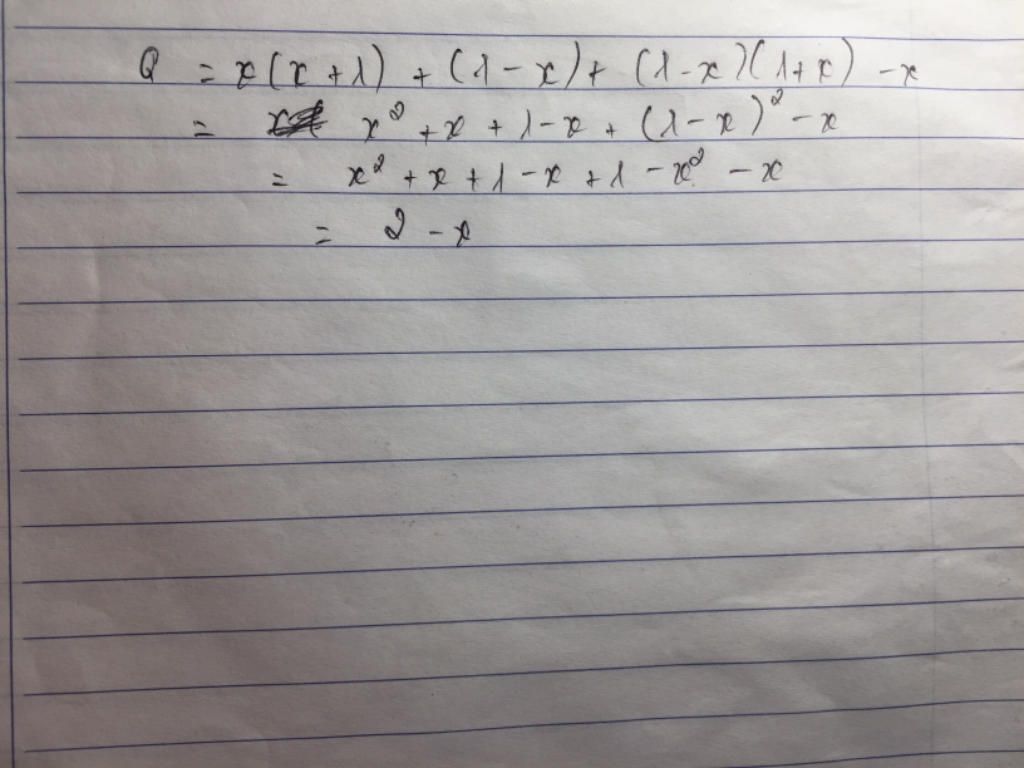 Q = x(x+1) + (1-x) + (1-x)(1+x) - x
= x² + x + 1 - x + (1-x)² - x
= x² + x + 1 - x + 1 - x² - x
= 2 - x